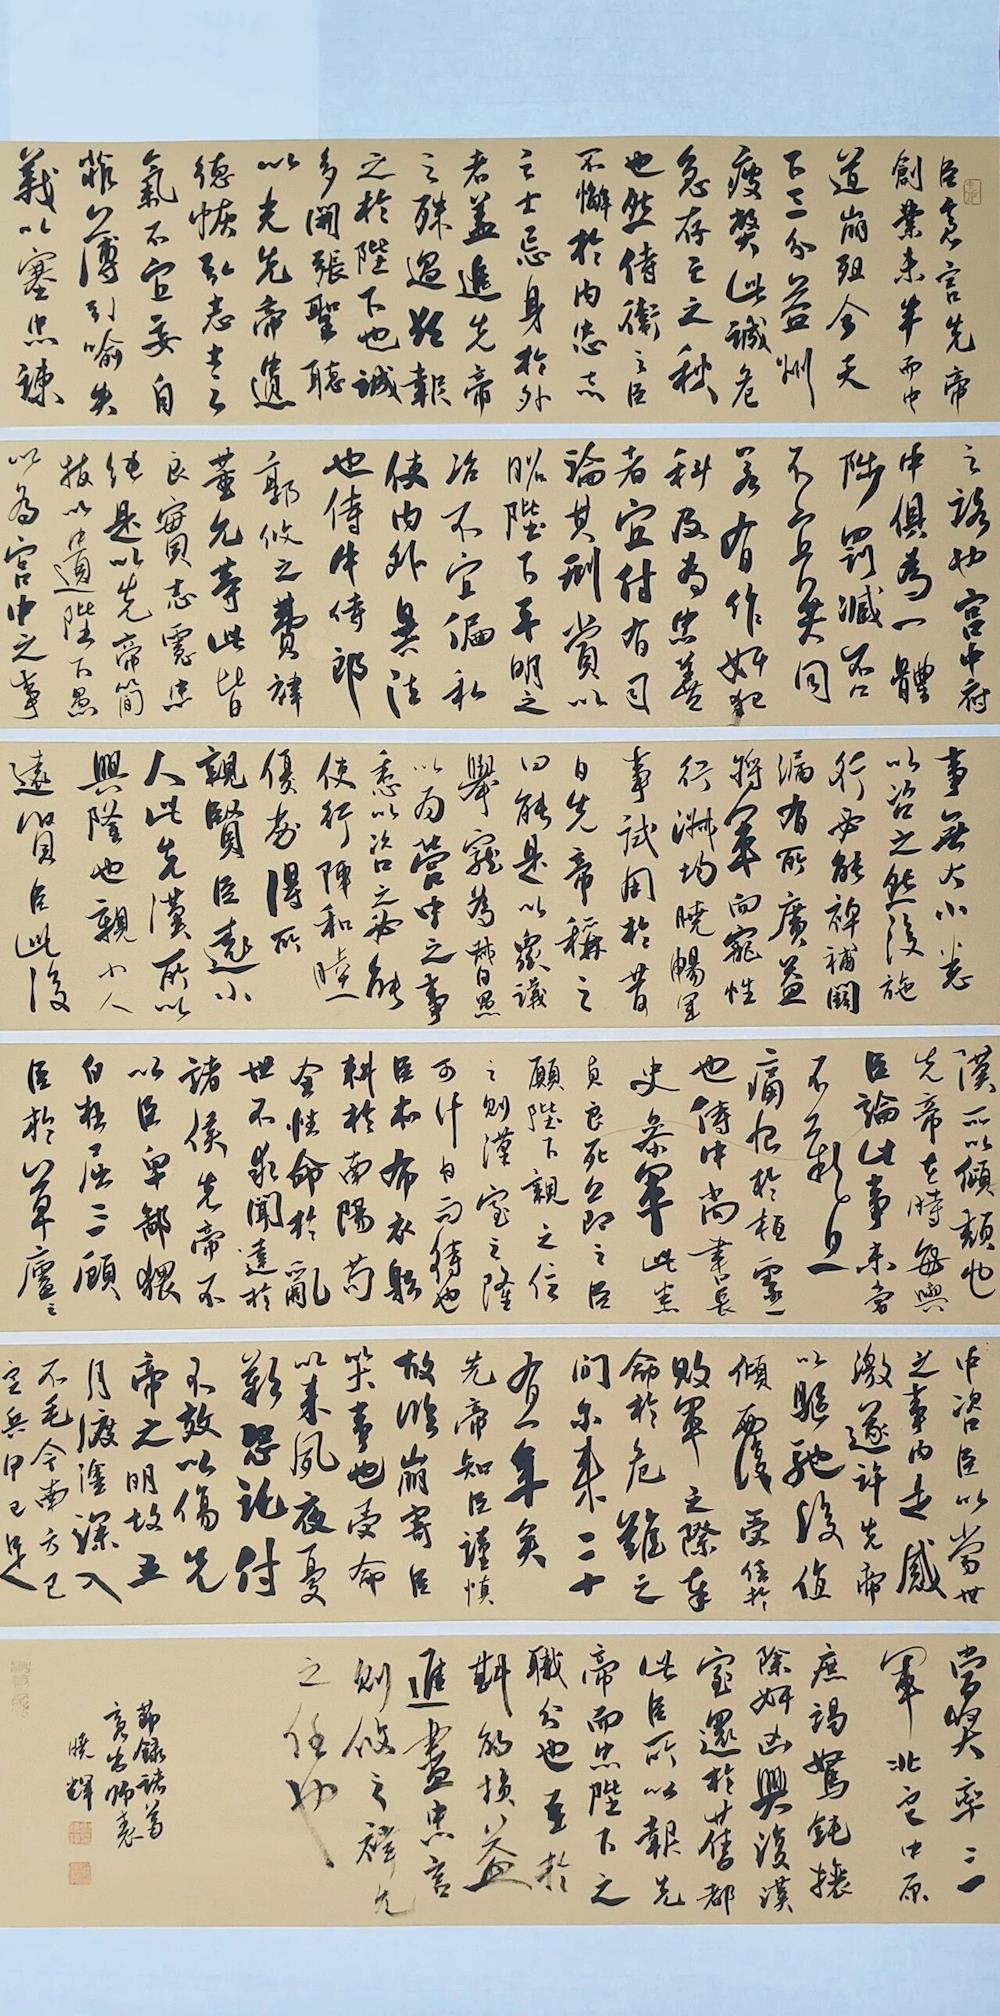 臣亮言先帝
創業未半而中
道崩殂今天
下三分益州
疲弊此誠危
急存亡之秋
也然侍衛之臣
不懈於內忠志
之士忘身於外
者蓋追先帝
之殊遇欲報
之於陛下也誠
多開張聖聽
以光先帝遺
德恢弘志士之
氣不宜妄自
菲薄引喻失
義以塞忠諫
之路也宮中府
中俱為一體
陟罰臧否
不宜異同
若有作奸犯
科及為忠善
者宜付有司
論其刑賞以
昭陛下平明之
治不宜偏私
使內外異法
也侍中侍郎
郭攸之費禕
董允等此皆
良實志慮忠
純是以先帝簡
拔以遺陛下愚
以為宮中之事
事無大小悉
以咨之然後施
行必能裨補闕
漏有所廣益
將軍向寵性
行淑均曉暢軍
事試用於昔
日先帝稱之
曰能是以眾議
舉寵為督愚
以為營中之事
悉以咨之必能
使行陣和睦
優劣得所
親賢臣遠小
人此先漢所以
興隆也親小人
遠賢臣此後
漢所以傾頹也
先帝在時每與
臣論此事未嘗
不歎息
痛恨於桓靈
也侍中尚書長
史參軍此悉
貞良死亡節之臣
願陛下親之信
之則漢室之隆
可計日而待也
臣本布衣躬
耕於南陽苟
全性命於亂
世不求聞達於
諸侯先帝不
以臣卑鄙猥
自枉屈三顧
臣於草廬之
中咨臣以當世
之事由是感
激遂許先帝
以驅馳後值
傾覆受任於
敗軍之際奉
命於危難之
間爾來二十
有一年矣
先帝知臣謹慎
故臨崩寄臣
以大事也受命
以來夙夜憂
歎恐託付
不效以傷先
帝之明故五
月渡瀘深入
不毛今南方已
定兵甲已足
當獎率三
軍北定中原
庶竭駑鈍攘
除奸凶興復漢
室還於舊都
此臣所以報先
帝而忠陛下之
職分也至於
斟酌損益
進盡忠言
則攸之禕允
之任也
節錄諸葛
亮出師表
曉輝